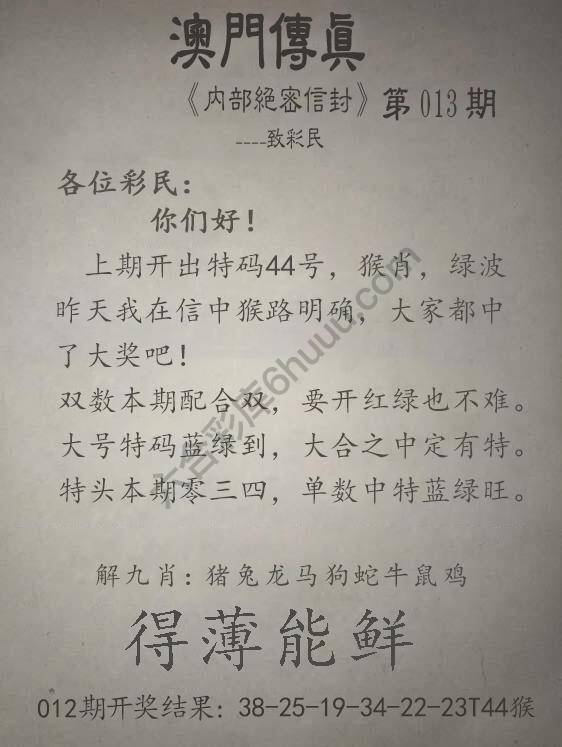 澳門傳真
《内部絕密信封》第013期
----致彩民
各位彩民：
你们好！
上期开出特码44号，猴肖，绿波
昨天我在信中猴路明确，大家都中
了大奖吧！
双数本期配合双，要开红绿也不难。
大号特码蓝绿到，大合之中定有特。
特头本期零三四，单数中特蓝绿旺。
解九肖：猪兔龙马狗蛇牛鼠鸡
得薄能鲜
012期开奖结果：38-25-19-34-22-23T44猴
六合彩库6huuu.com